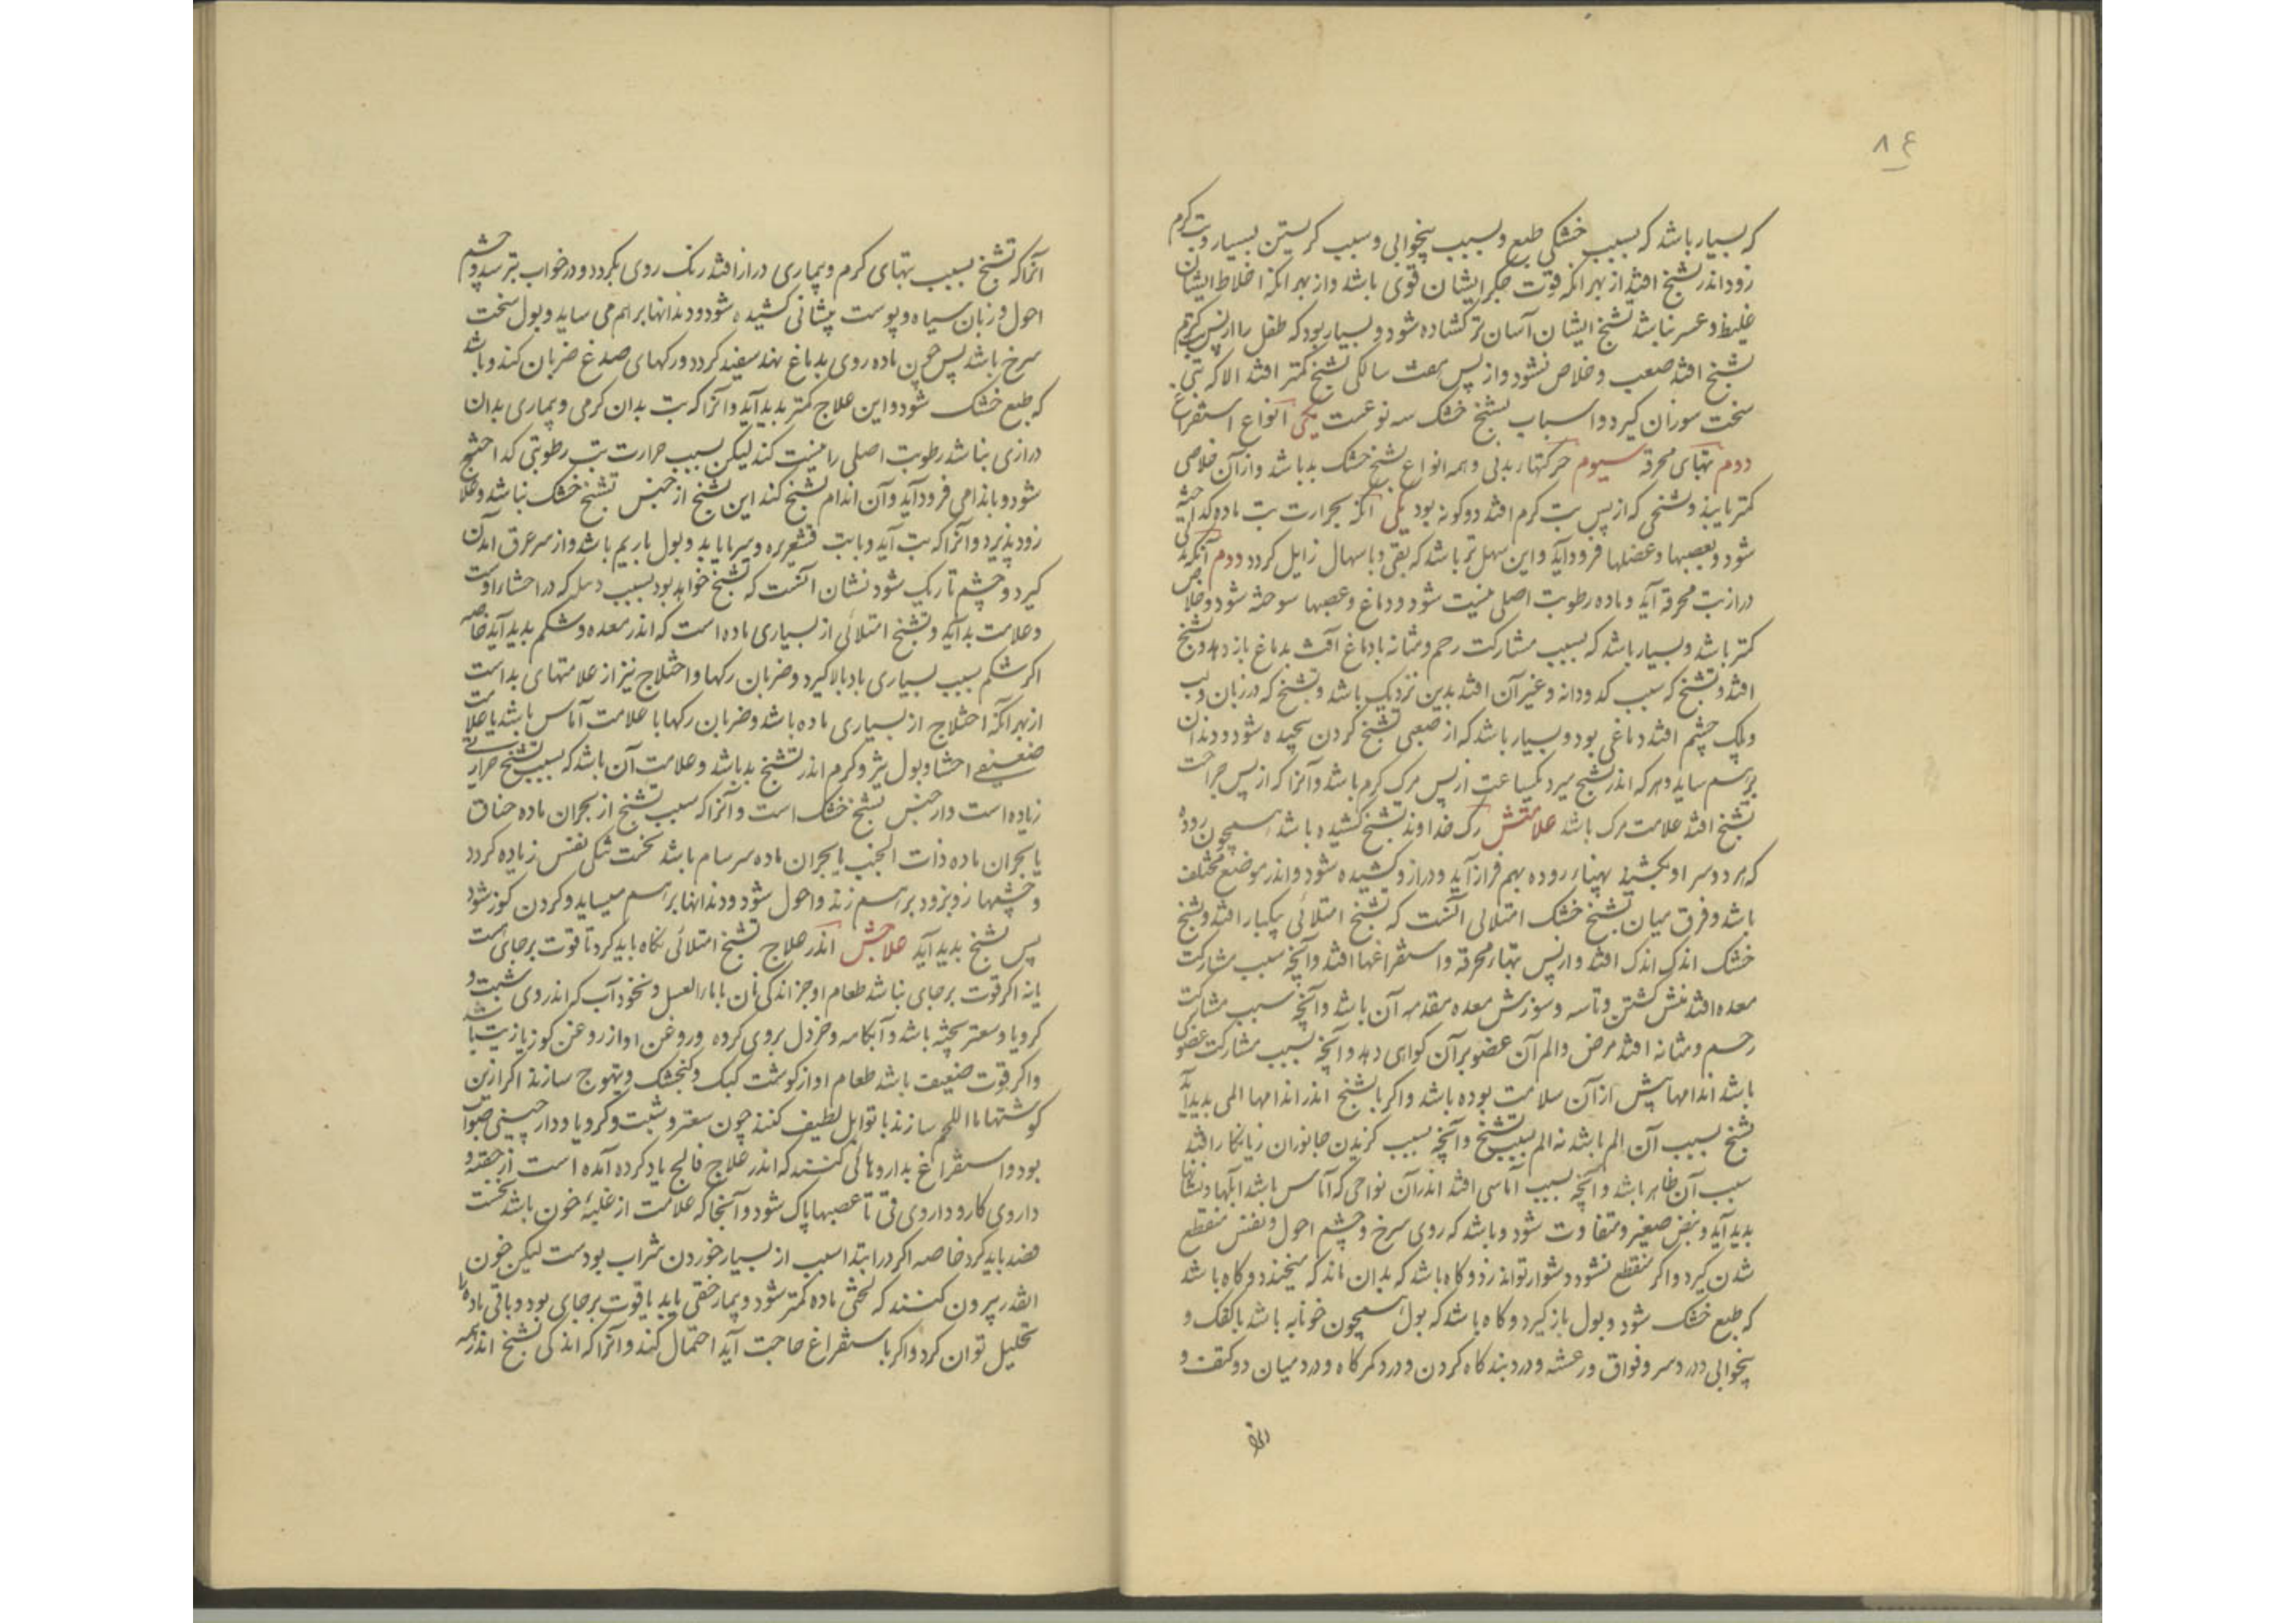 ۸۴
که بسیار باشد که بسبب خشکی طبع و بسبب بیخوابی و سبب کریستن بسیار و تب کرم
زود اندر تشنج افتد از بهر انکه قوت جکر ایشان قوی باشد و از بهر انکه اخلاط ایشان
غلیظ و عسر نباشد تشنج ایشان آسان تر کشاده شود و بسیار بود که طفل را از پس تب کرم
تشنج افتد صعب و خلاص نشود و از پس هفت سالکی تشنج کمتر افتد الا که تبی
سخت سوزان کیرد و اسباب تشنج خشک سه نوعست یکی انواع استفراغ
دوم تبهای محرقه سیوم حرکتهاء بدنی و همه انواع تشنج خشک بد باشد و از آن خلاصی
کمتر یابند و تشنجی که از پس تب کرم افتد دو کونه بود یکی انکه بحرارت تب ماده کداخته
شود و بعصبها و عضلها فرود آید و این سهل تر باشد که بقی و باسهال زایل کردد دوم آنکه
دراز تب محرقه آید و ماده رطوبت اصلی نیست شود و دماغ و عصبها سوخته شود و خلاص
کمتر باشد و بسیار باشد که بسبب مشارکت رحم و مثانه با دماغ آفت بدماغ باز دهد و تشنج
افتد و تشنج که سبب کدودانه و غیر آن افتد بدین نزدیک باشد و تشنج که در زبان و لب
و پلک چشم افتد دماغی بود و بسیار باشد که از صعبی تشنج کردن پیچیده شود و دندان
برهم ساید و هر که اندر تشنج میرد یکساعت از پس مرک کرم باشد و آنرا که از پس جراحت
تشنج افتد علامت مرک باشد علامتش رک خداوند تشنج کشیده باشد همچون روده
که هر دو سر او بکشند پهناء روده بهم فراز آید و دراز و کشیده شود و اندر موضع مختلف
باشد و فرق میان تشنج خشک امتلائی آنست که تشنج امتلائی یکبار افتد و تشنج
خشک اندک اندک افتد و از پس تبهاء محرقه و استفراغها افتد و آنچه سبب مشارکت
معده افتد منش کشتن و تاسه و سوزش معده مقدمه آن باشد و آنچه سبب مشارکت
رحم و مثانه افتد مرض و الم آن عضو بر آن کواهی دهد و آنچه بسبب مشارکت عضوی
باشد اندامها پیش از آن سلامت بوده باشد و اکر با تشنج اندر اندامها المی بدید آید
تشنج بسبب آن الم باشد نه الم بسبب تشنج و آنچه بسبب کزیدن جانوران زیانکار افتد
سبب آن ظاهر باشد و آنچه بسبب آماسی افتد اندر آن نواحی که آماس باشد المها و نشانها
بدید آید و نبض صغیر و متفاوت شود و باشد که روی سرخ و چشم احول و نفس منقطع
شدن کیرد و اکر منقطع نشود دشوار تواند زد و کاه باشد که بدان ماند که میخندد و کاه باشد
که طبع خشک شود و بول باز کیرد و کاه باشد که بول همچون خونابه باشد با کفک و
بیخوابی و درد سر و فواق و رعشه و درد بندکاه کردن و درد کمرکاه و درد میان دو کتف و
آنرا که تشنج بسبب تبهای کرم و بیماری دراز افتد رنک روی بکردد و در خواب بترسد و چشم
احول و زبان سیاه و پوست پیشانی کشیده شود و دندانها بر هم می ساید و بول سخت
سرخ باشد پس چون ماده روی بدماغ نهد سفید کردد و رکهای صدغ ضربان کند و باشد
که طبع خشک شود و این علاج کمتر بدید آید و آنرا که تب بدان کرمی و بیماری بدان
درازی نباشد رطوبت اصلی را نیست کند لیکن بسبب حرارت تب رطوبتی کداخته
شود و باندامی فرود آید و آن اندام تشنج کند این تشنج از جنس تشنج خشک نباشد و علاج
زود پذیرد و آنرا که تب آید و با تب قشعریره و سرما یابد و بول باریم باشد و از سر عرق آمدن
کیرد و چشم تاریک شود نشان آنست که تشنج خواهد بود بسبب دمل که در احشاء اوست
و علامت بد آید و تشنج امتلائی از بسیاری ماده است که اندر معده و شکم بدید آید خاصه
اکر شکم سبب بسیاری باد بالا کیرد و ضربان رکها و اختلاج نیز از علامتهای بد است
از بهر آنکه اختلاج از بسیاری ماده باشد و ضربان رکها با علامت آماس باشد یا علامت
ضعیفی احشا و بول تیز و کرم اندر تشنج بد باشد و علامت آن باشد که بسبب تشنج حرارتی
زیاده است و از جنس تشنج خشک است و آنرا که سبب تشنج از بحران ماده خناق
یا بحران ماده ذات الجنب یا بحران ماده سرسام باشد نخست تنکی نفس زیاده کردد
و چشمها زود زود بر هم زند و احول شود و دندانها بر هم میساید و کردن کوز شود
پس تشنج بدید آید علاجش اندر علاج تشنج امتلائی نکاه باید کرد تا قوت بر جای هست
یا نه اکر قوت بر جای نباشد طعام او جز اندکی نان با ماءالعسل و نخود آب که اندر وی شبت و
کرویا و سعتر پخته باشد و آبکامه و خردل بروی کرده و روغن او از روغن کوز یا زیت باشد
و اکر قوت ضعیف باشد طعام او از کوشت کبک و کنجشک و تیهوج سازند اکر ازین
کوشتها ماءاللحم سازند با توابل لطیف کنند چون سعتر و شبت و کرویا و دارچینی صواب
بود و استفراغ بداروهائی کنند که اندر علاج فالج یاد کرده آمده است از حقنه و
داروی کار و داروی قی تا عصبها پاک شود و آنجا که علامت از غلبهٔ خون باشد نخست
فصد باید کرد خاصه اکر در ابتدا سبب از بسیار خوردن شراب بودست لیکن خون
انقدر بیرون کنند که لختی ماده کمتر شود و بیمار خفتی یابد یا قوت بر جای بود و باقی ماده را
تحلیل توان کرد و اکر باستفراغ حاجت آید احتمال کند و آنرا که اندکی تشنج اندر همه